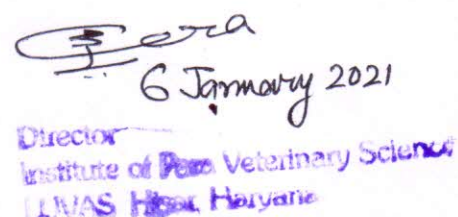 6 January 2021
Director
Institute of Para Veterinary Sciences
LUVAS Hisar, Haryana